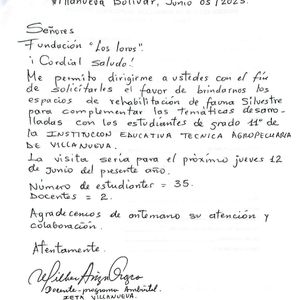 Villanueva Bolívar, Junio 05/2025.
Señores
Fundación "Los loros".
¡Cordial Saludo!
Me permito dirigirme a ustedes con el fin
de solicitarles el favor de brindarnos los
espacios de rehabilitación de fauna Silvestre
para complementar las temáticas desarro-
lladas con los estudiantes de grado 11° de
la INSTITUCION EDUCATIVA TECNICA AGROPECUARIA
DE VILLANUEVA.
La visita sería para el próximo jueves 12
de Junio del presente año.
Número de estudiantes = 35.
Docentes = 2.
Agradecemos de antemano su atención y
colaboración.
Atentamente.
Docente-programa Ambiental.
IETA VILLANUEVA.